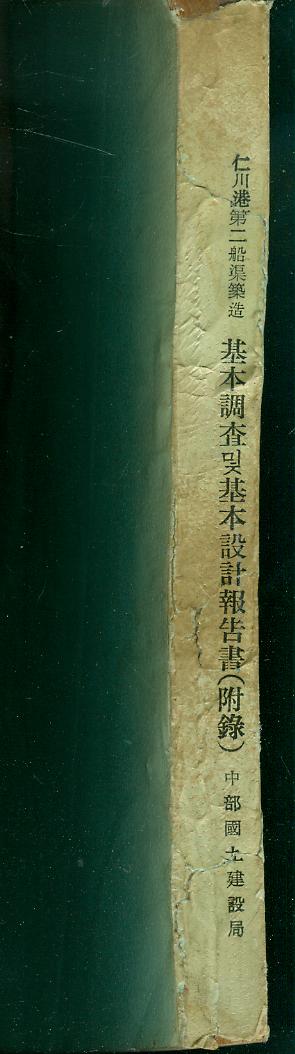 仁川港第二船渠築造 基本調査및基本設計報告書(附錄) 中部國土建設局